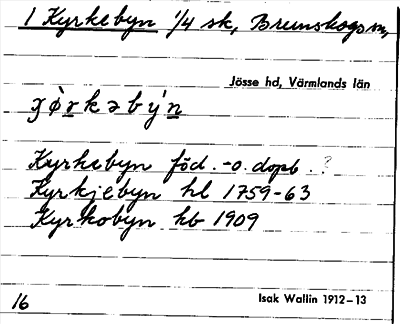 1 Kyrkebyn 1/4 sk, Brunskogs sn,
Jösse hd, Värmlands län
Kyrkebyn föd.-o.dopb. ?
Kyrkjebyn hl 1759-63
Kyrkobyn kb 1909
16
Isak Wallin 1912-13